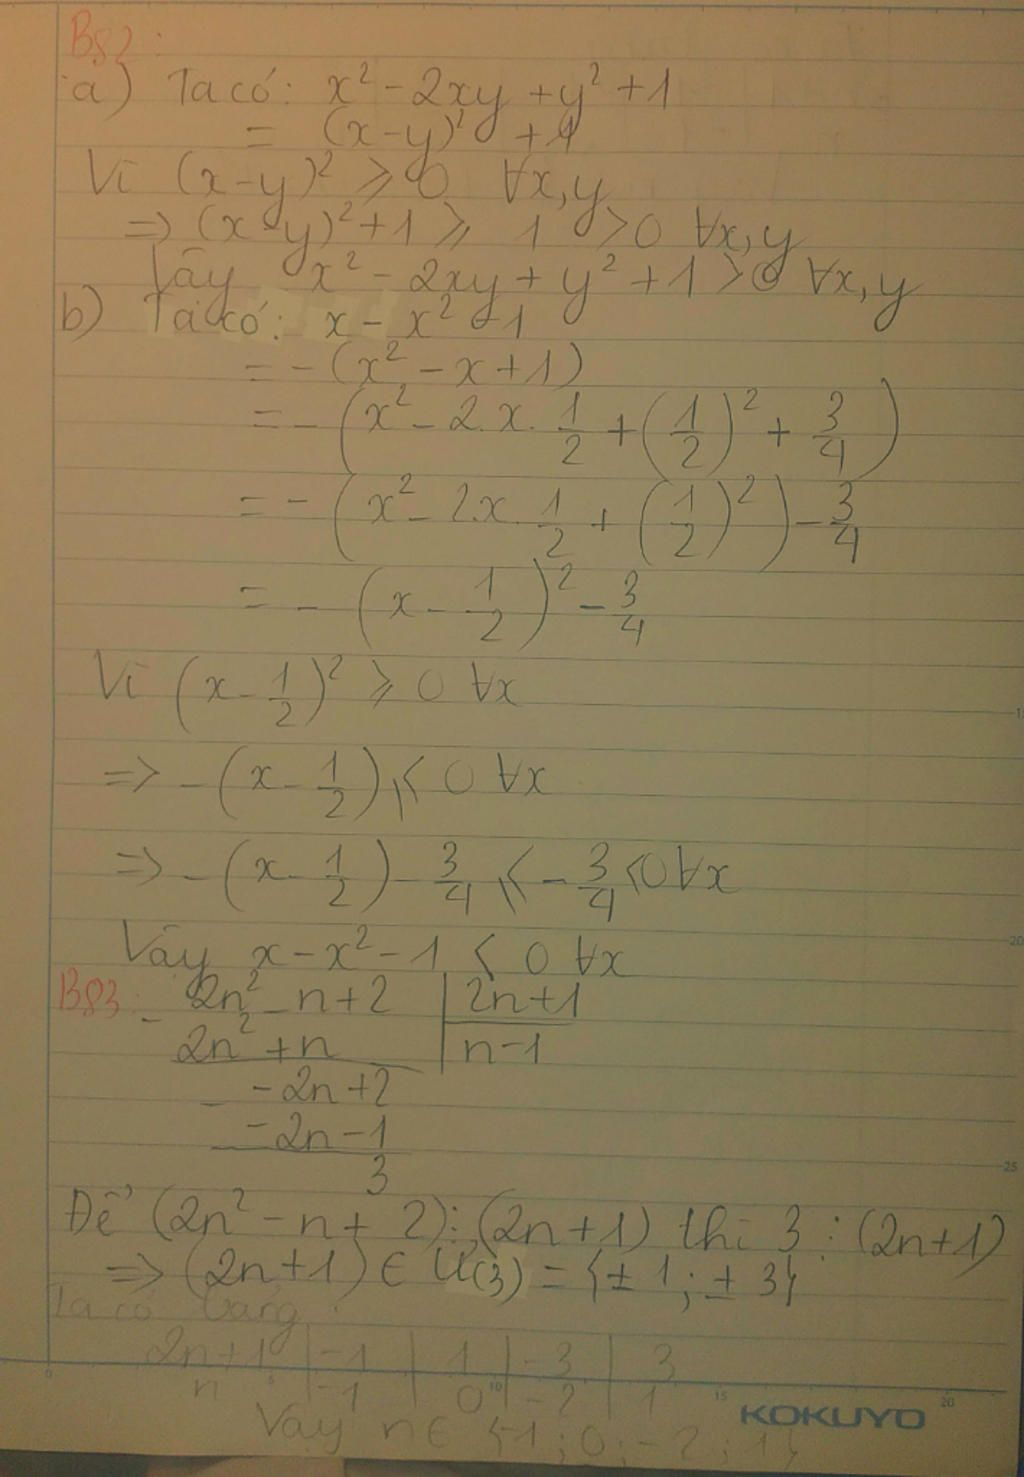 B82:
a) Ta có: x² - 2xy + y² + 1
= (x-y)² + 1
Vì (x-y)² ⩾ 0 ∀x,y
=> (x-y)² + 1 ⩾ 1 > 0 ∀x,y
Vậy x² - 2xy + y² + 1 > 0 ∀x,y
b) Ta có: x - x² - 1
= - (x² - x + 1)
= - (x² - 2.x.1/2 + (1/2)² + 3/4)
= - (x² - 2.x.1/2 + (1/2)²) - 3/4
= - (x - 1/2)² - 3/4
Vì (x - 1/2)² ⩾ 0 ∀x
=> - (x - 1/2) ⩽ 0 ∀x
=> - (x - 1/2) - 3/4 ⩽ - 3/4 < 0 ∀x
Vậy x - x² - 1 < 0 ∀x
B83: - 2n² - n + 2 | 2n+1
2n² + n | n-1
- -2n + 2
-2n - 1
3
Để (2n² - n + 2) ⋮ (2n+1) thì 3 ⋮ (2n+1)
=> (2n+1) ∈ Ư(3) = {± 1; ± 3}
Ta có bảng:
2n+1 | -1 | 1 | -3 | 3
n | -1 | 0 | -2 | 1
Vậy n ∈ {-1; 0; -2; 1}
KOKUYO